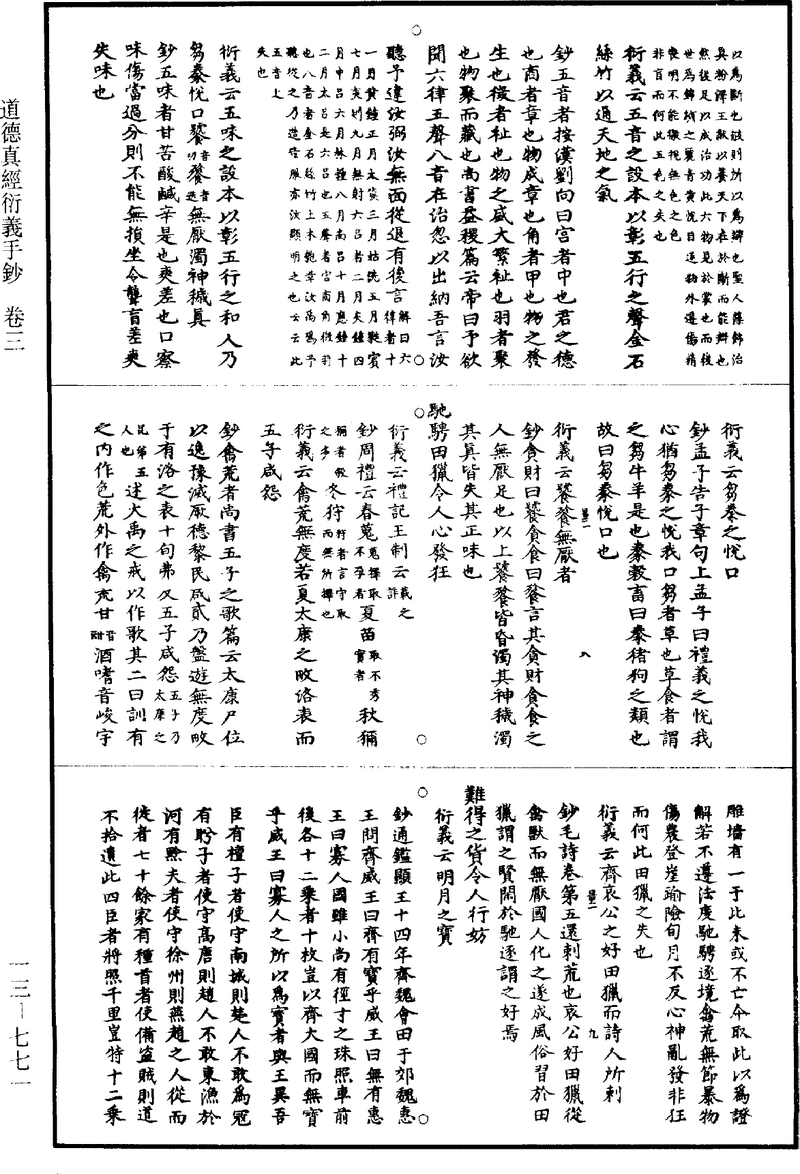 以爲斷也黻則所以爲辯也聖人藻飾治
具粉澤王猷以養天下在於斷而能辯也
然後足以成治功此六物見於裳也而後
世爲錦綉之麗青黄悦目逐物外遷傷精
喪明不能微視無色之色
非盲而何此五色之失也
衍義云五音之設本以彰五行之聲金石
絲竹以通天地之氣
鈔五音者按漢劉向曰宮者中也君之德
也商者章也物成章也角者甲也物之發
生也徵者祉也物之盛大繁祉也羽者聚
也物聚而藏也尚書益稷篇云帝曰予欲
聞六律五聲八音在治忽以出納吾言汝
聽予違汝弼汝無面從退有後言解曰六律者十
一月黄鍾正月太簇三月姑洗五月蕤賓
七月夷則九月無射六呂者二月夾鍾四
月中呂六月林鍾八月南呂十月應鍾十
二月大呂是六呂也五聲者宮商角徵羽
也八音者金石絲竹土木匏革汝尚爲予
聽從之乃造些服亦汝顯明之也云云此
五音上
失也
衍義云五味之設本以彰五行之和人乃
芻豢悅口饕音叨餮音迭無厭濁神穢真
鈔五味者甘苦酸鹹辛是也爽差也口察
味傷當過分則不能無損坐令聾盲差爽
失味也
衍義云芻豢之悅口
鈔孟子告子章句上孟子曰禮義之悅我
心猶芻豢之悅我口芻者草也草食者謂
之芻牛羊是也豢穀畜曰豢猪狗之類也
故曰芻豢悅口也
衍義云饕餮無厭者
鈔貪財曰饕貪食曰餮言其貪財貪食之
人無厭足也以上饕餮皆昏濁其神穢濁
其真皆失其正味也
馳騁田獵令人心發狂
衍義云禮記王制云義之詐
鈔周禮云春蒐蒐擇取不孕者夏苗取不秀實者秋獮
獮者殺之多冬狩狩者言守取而無所擇也
衍義云禽荒無度若夏太康之畋洛表而
五子咸怨
鈔禽荒者尚書五子之歌篇云太康尸位
以逸豫滅厥德黎民咸貳乃盤遊無度畋
于有洛之表十旬弗反五子咸怨五子乃太康之
昆弟五人也述大禹之戒以作歌其二曰訓有
之內作色荒外作禽荒甘音酣酒嗜音峻宇
雕墻有一于此未或不亡今取此以爲證
解若不遵法度馳騁逐境禽荒無節暴物
傷農登崖踰險旬月不反心神亂發非狂
而何此田獵之失也
衍義云齊哀公之好田獵而詩人所刺
鈔毛詩卷第五還刺荒也哀公好田獵從
禽獸而無厭國人化之遂成風俗習於田
獵謂之賢閑於馳逐謂之好焉
難得之貨令人行妨
衍義云明月之寶
鈔通鑑顯王十四年齊魏會田于郊魏惠
王問齊威王曰齊有寶乎威王曰無有惠
王曰寡人國雖小尚有徑寸之珠照車前
後各十二乘者十枚豈以齊大國而無寶
乎威王曰寡人之所以爲寶者與王異吾
臣有檀子者使守南城則楚人不敢爲寇
有盼子者使守高唐則趙人不敢東漁於
河有黔夫者使守徐州則燕趙之人從而
徙者七十餘家有種首者使備盜賊則道
不拾遺此四臣者將照千里豈特十二乘
道德真經衍義手鈔 卷三
一三—七七一